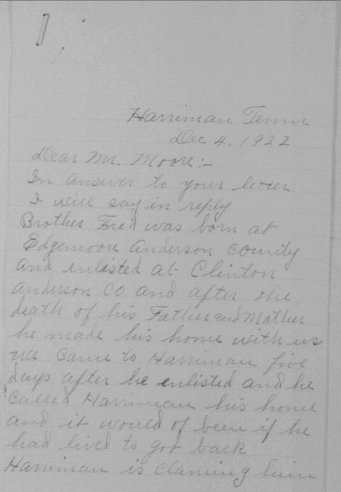 Harriman Tenn
Dec 4, 1922
Dear Mr. Moore:-
In answer to your letter
I will say in reply
Brother Fred was born at
Edgemoore Anderson County
and enlisted at Clinton
Anderson Co and after the
death of his Father and Mother
he made his home with us
we came to Harriman five
days after he enlisted and he
called Harriman his home
and it would of been if he
had lived to got back
Harriman is claming him